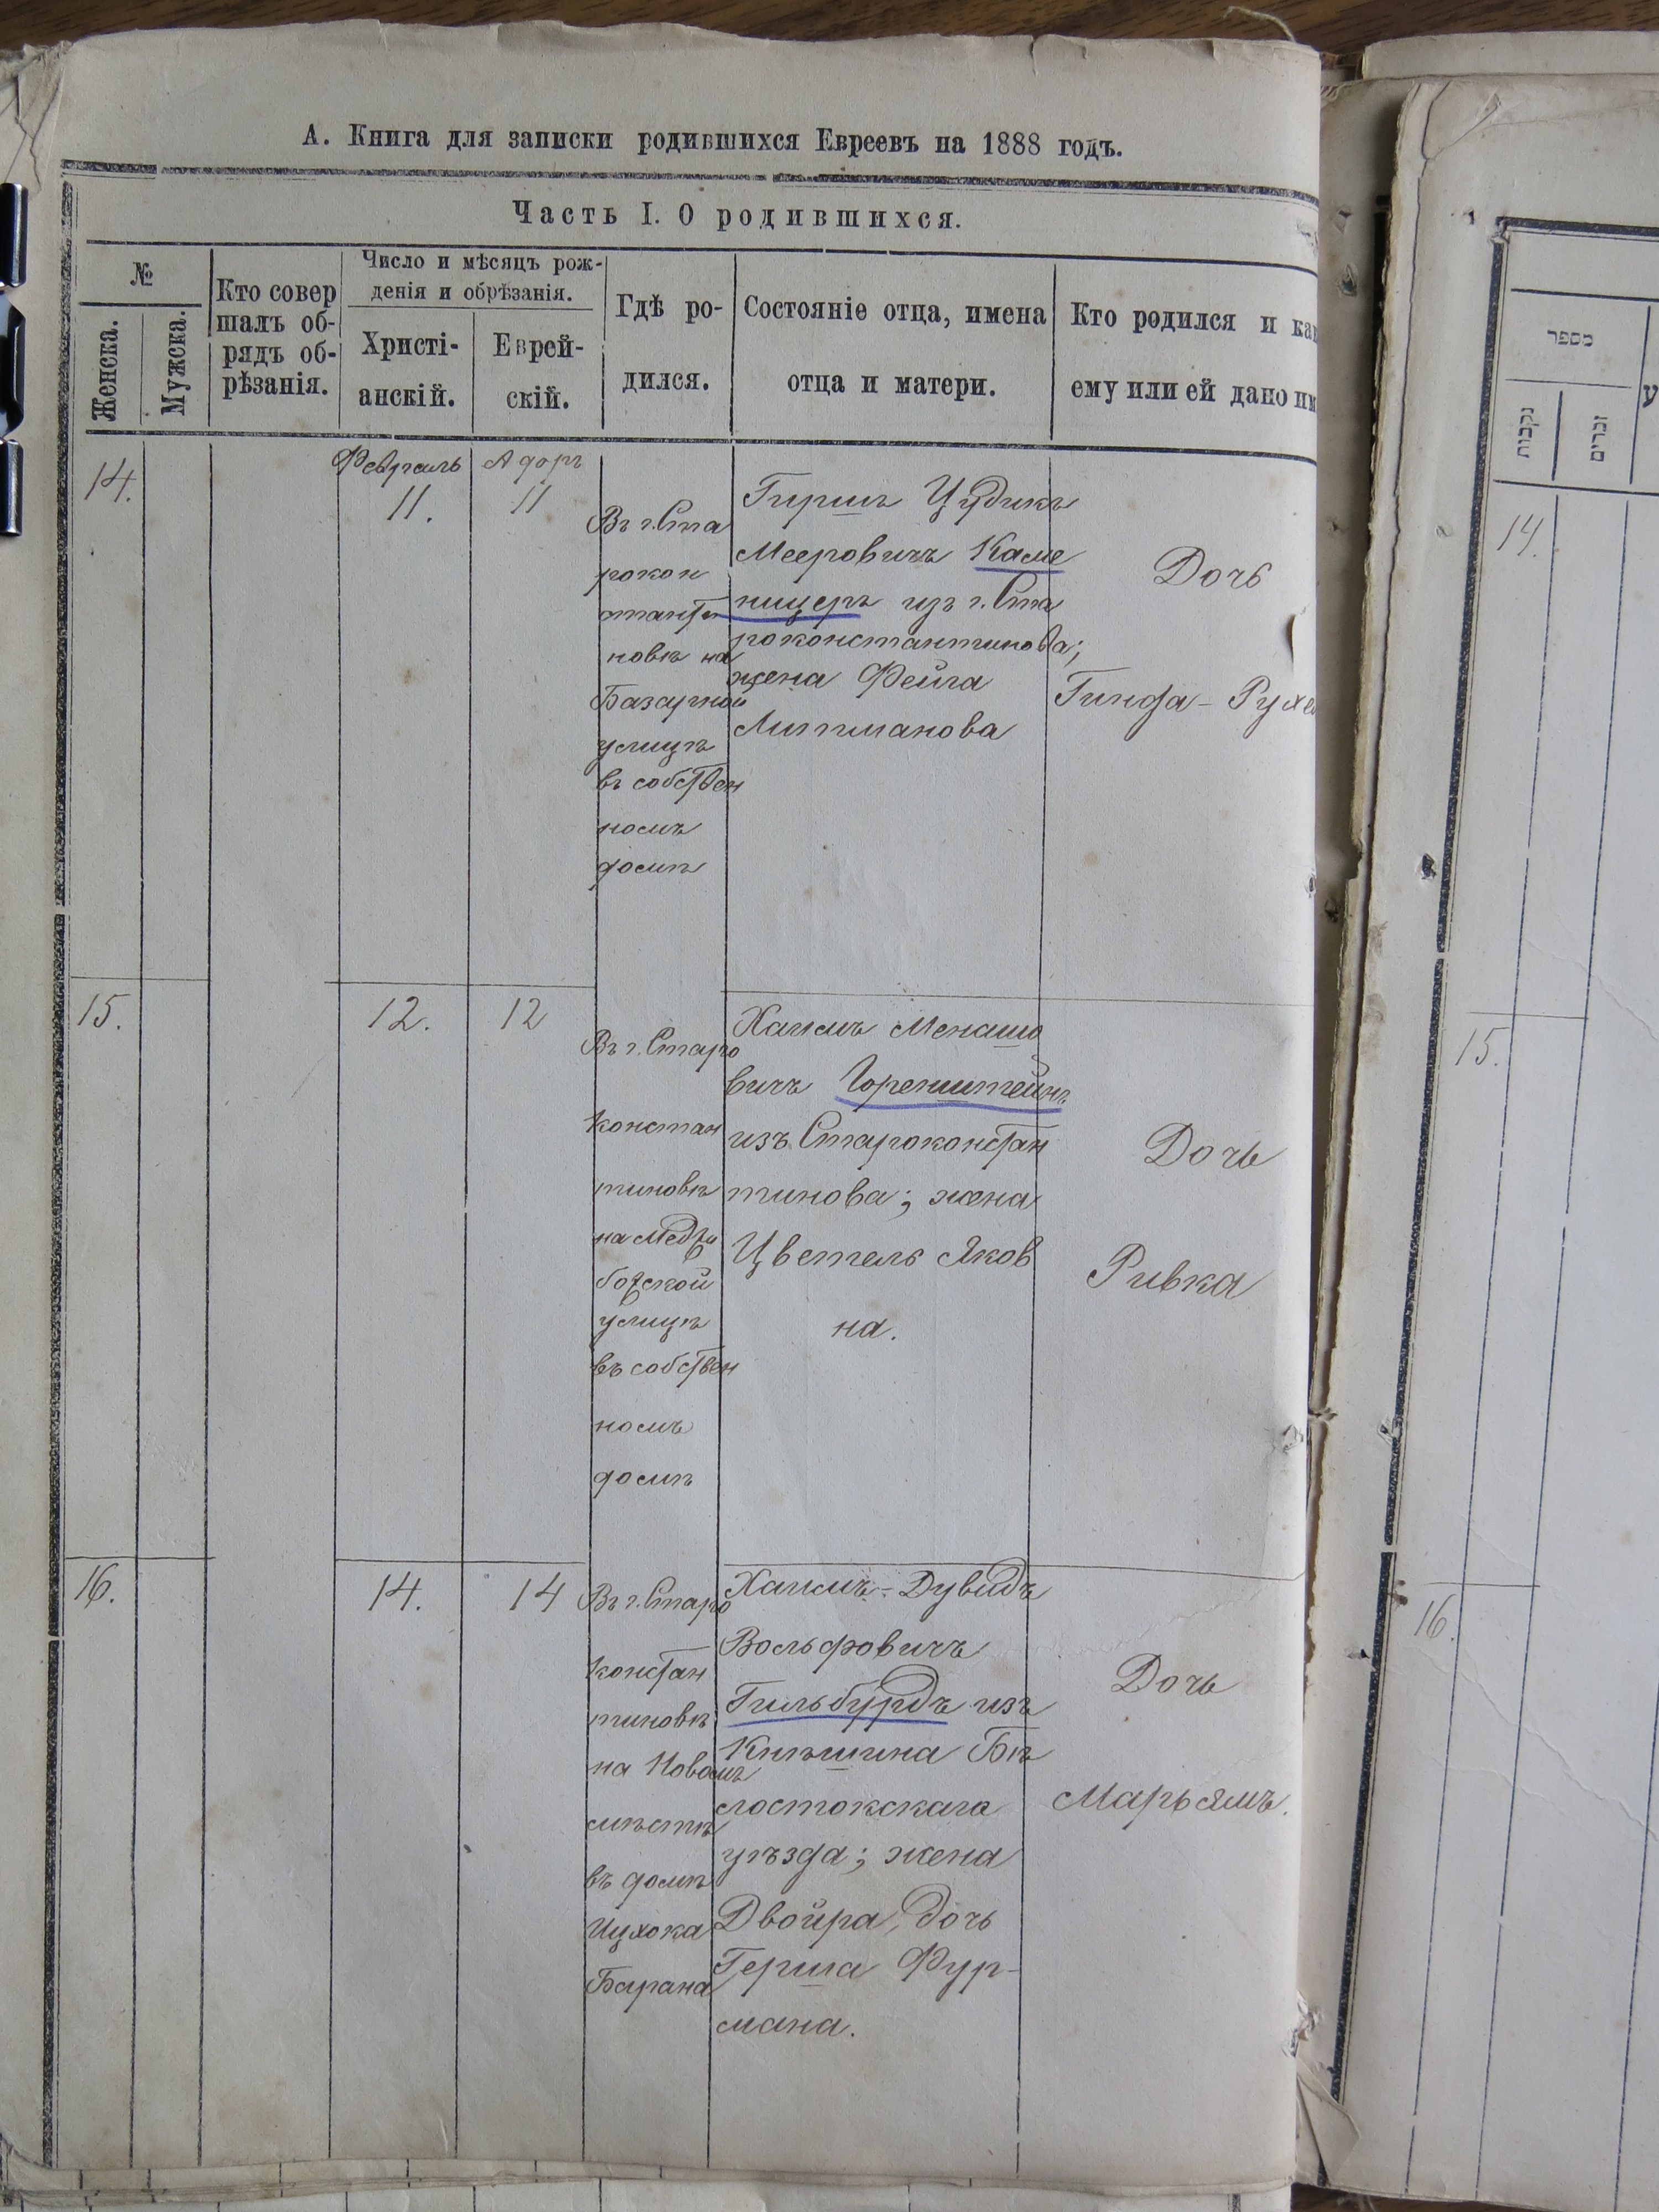 А. Книга для записки родившихся Евреевъ на 1888 годъ.
Часть I. О родившихся.
№
Женска.
Мужска.
Кто совер
шалъ об-
рядъ об-
рѣзанія.
Число и мѣсяцъ рож-
денія и обрѣзанія.
Христі-
анскій.
Еврей-
скій.
Гдѣ ро-
дился.
Состояніе отца, имена
отца и матери.
Кто родился и как
ему или ей дано им
14.
Февраль
11.
Адоръ
11
Въ г. Ста
рокон
станти
новѣ на
Базарной
улицѣ
въ собствен
номъ
домѣ
Гершъ Цудикъ
Мееровичъ Каме
ницеръ изъ г. Ста
роконстантинова;
жена Фейга
Липманова
Дочь
Гинда - Рухел
15.
12.
12
Въ г. Старо
констан
тиновѣ
на Медж
божской
улицѣ
въ собствен
номъ
домѣ
Хаимъ Менашо
вичъ Горенштейнъ
изъ Староконстан
тинова; жена
Цветель Яков
на.
Дочь
Ривка
16.
14.
14
Въ г. Старо
констан
тиновѣ
на Новомъ
мѣстѣ
въ домѣ
Ицхока
Барана
Хаимъ-Дувидъ
Вольфовичъ
Гильбурдъ изъ
Кнышина Бѣ
лостокскаго
уѣзда; жена
Двойра, дочь
Герша Фур-
мана.
Дочь
Марьямъ.
מספר
נקבות
זכרים
14.
15.
16.